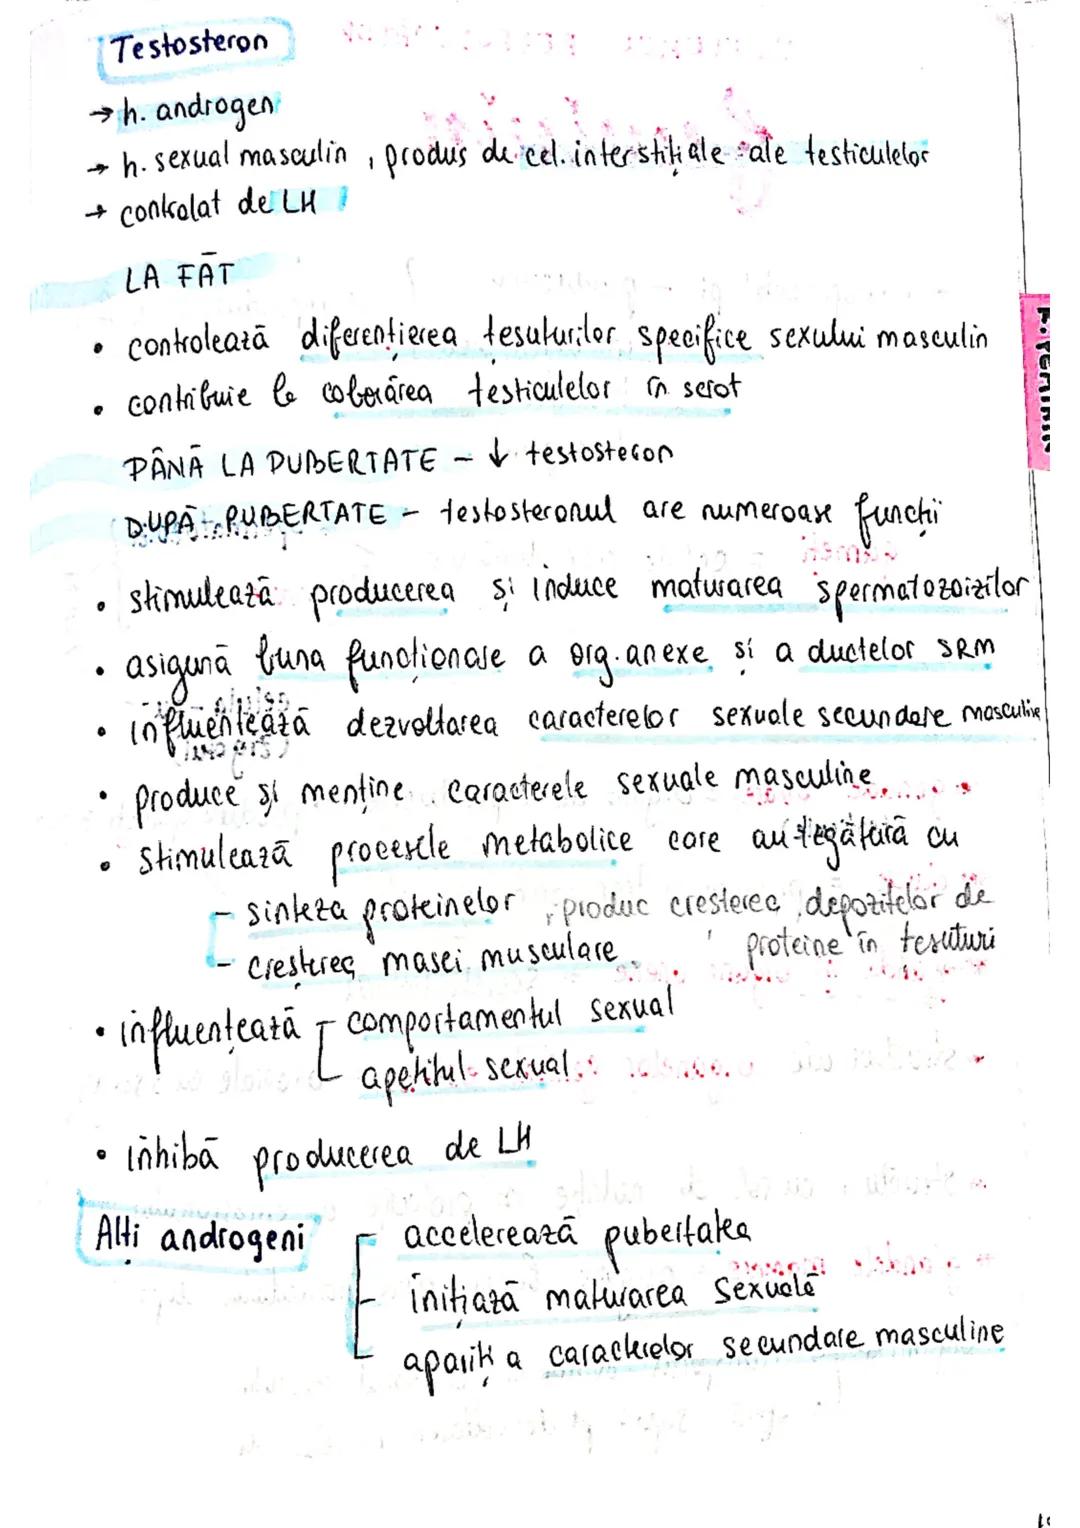 Testosteron
→ h. androgen
→ h. sexual masculin, produs de cel. interstițiale ale testiculelor
→ controlat de LH
LA FĂT
• controlează diferențierea țesuturilor specifice sexului masculin
• contribuie la coborârea testiculelor în scrot
PÂNĂ LA PUBERTATE - ↓ testosteron
DUPĂ PUBERTATE - testosteronul are numeroase funcții
• stimulează producerea și induce maturarea spermatozoizilor
• asigură buna funcționare a org. anexe și a ductelor SRM
• influențează dezvoltarea caracterelor sexuale secundare masculine
• produce și menține caracterele sexuale masculine
• stimulează procesele metabolice care au legătură cu
- sinteza proteinelor, produc creșterea depozitelor de
- creșterea masei musculare proteine în țesuturi
• influențează - comportamentul sexual
apetitul sexual
• inhibă producerea de LH
Alți androgeni - accelerează pubertatea
- inițiază maturarea sexuală
- apariția caracterelor secundare masculine
F. FEMININ